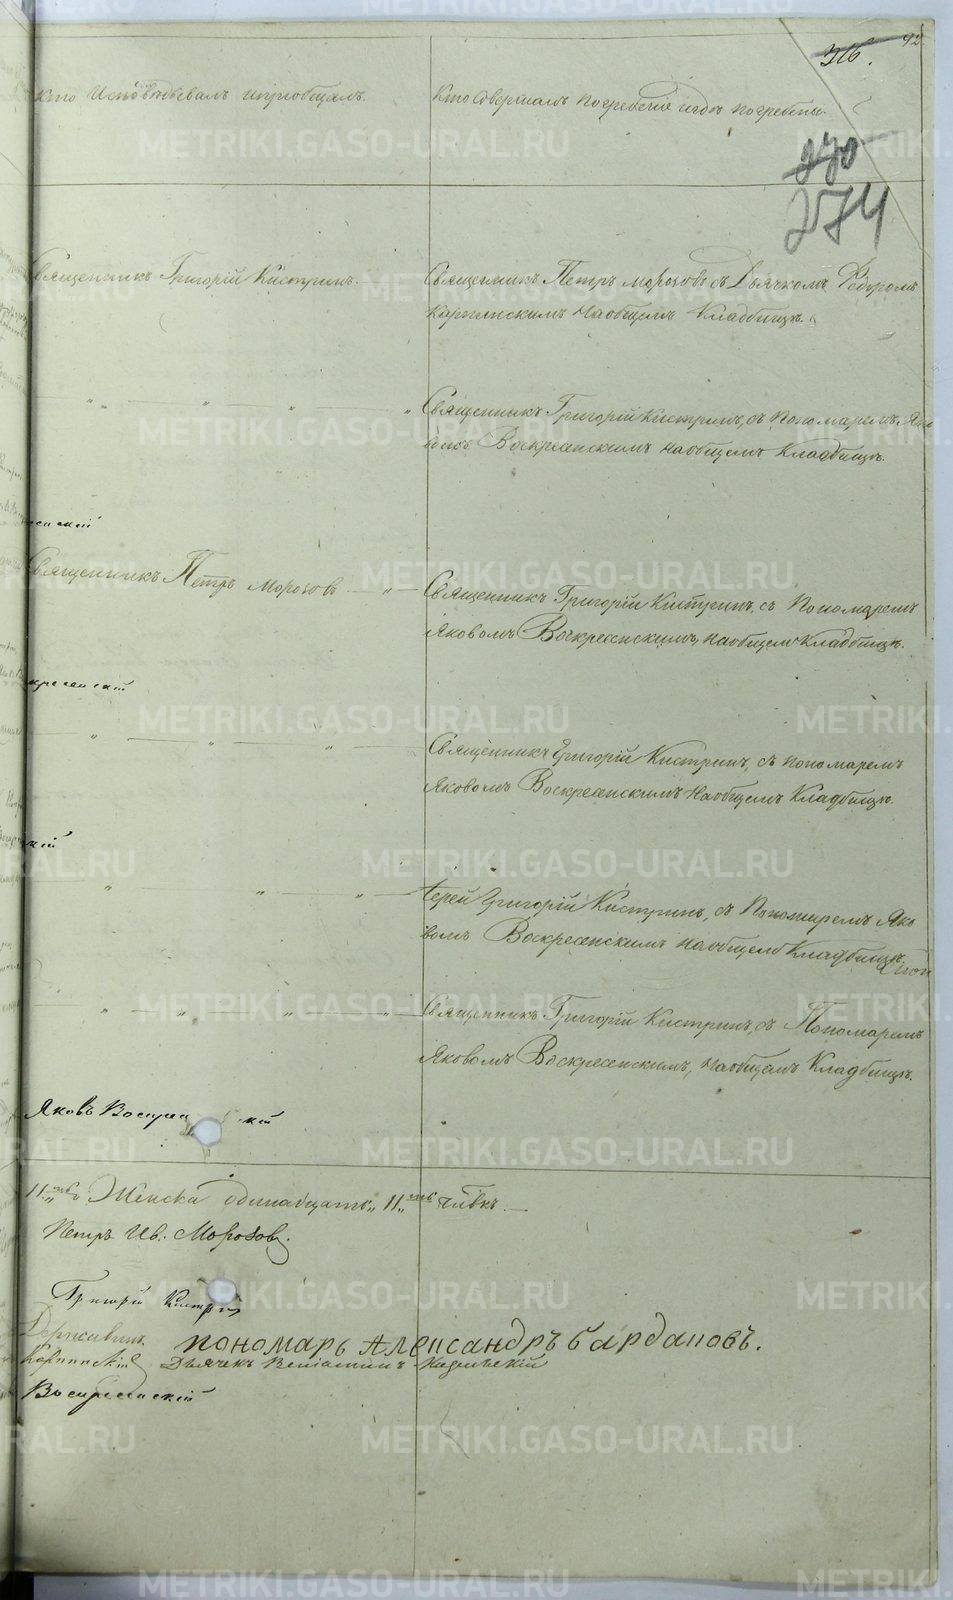 92
316.
Кто Исповѣдывалъ и пріобщалъ.
Кто Совершалъ погребеніе и гдѣ погребены.
270
274
Священникъ Григорій Кистринъ.
Священникъ Петръ Морозовъ съ Дьячкомъ Ѳедоромъ
Карпинскимъ На общемъ Кладбищѣ.
Священникъ Григорій Кистринъ, съ Пономаремъ Яко
вомъ Воскресенскимъ на общемъ Кладбищѣ.
енскій
Священникъ Петръ Морозовъ
Священникъ Григорій Кистринъ, съ Пономаремъ
Яковомъ Воскресенскимъ, на общемъ Кладбищѣ.
кресенскій
Священникъ Григорій Кистринъ, съ пономаремъ
Яковомъ Воскресенскимъ На общемъ Кладбищѣ.
кій
Іерей Григорій Кистринъ, съ Пономаремъ Яко
вомъ Воскресенскимъ на общемъ Кладбищѣ.
Священникъ Григорій Кистринъ, съ Пономаремъ
Яковомъ Воскресенскимъ, На общемъ Кладбищѣ.
Яковъ Воскре кій
11 Женска одинадцать 11
Петръ Ив. Морозовъ.
Григорій Кистринъ
пономарь Александръ Бардановъ.
Карпинскій
Дьячекъ Веніаминъ
Воскресенскій
METRIKI.GASO-URAL.RU